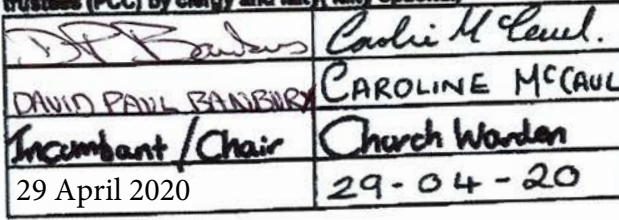 trustees (PCC) by clergy and laity;
DAVID PAUL BANBURY CAROLINE McCAUL
Incumbant / Chair Church Warden
29 April 2020 29-04-20